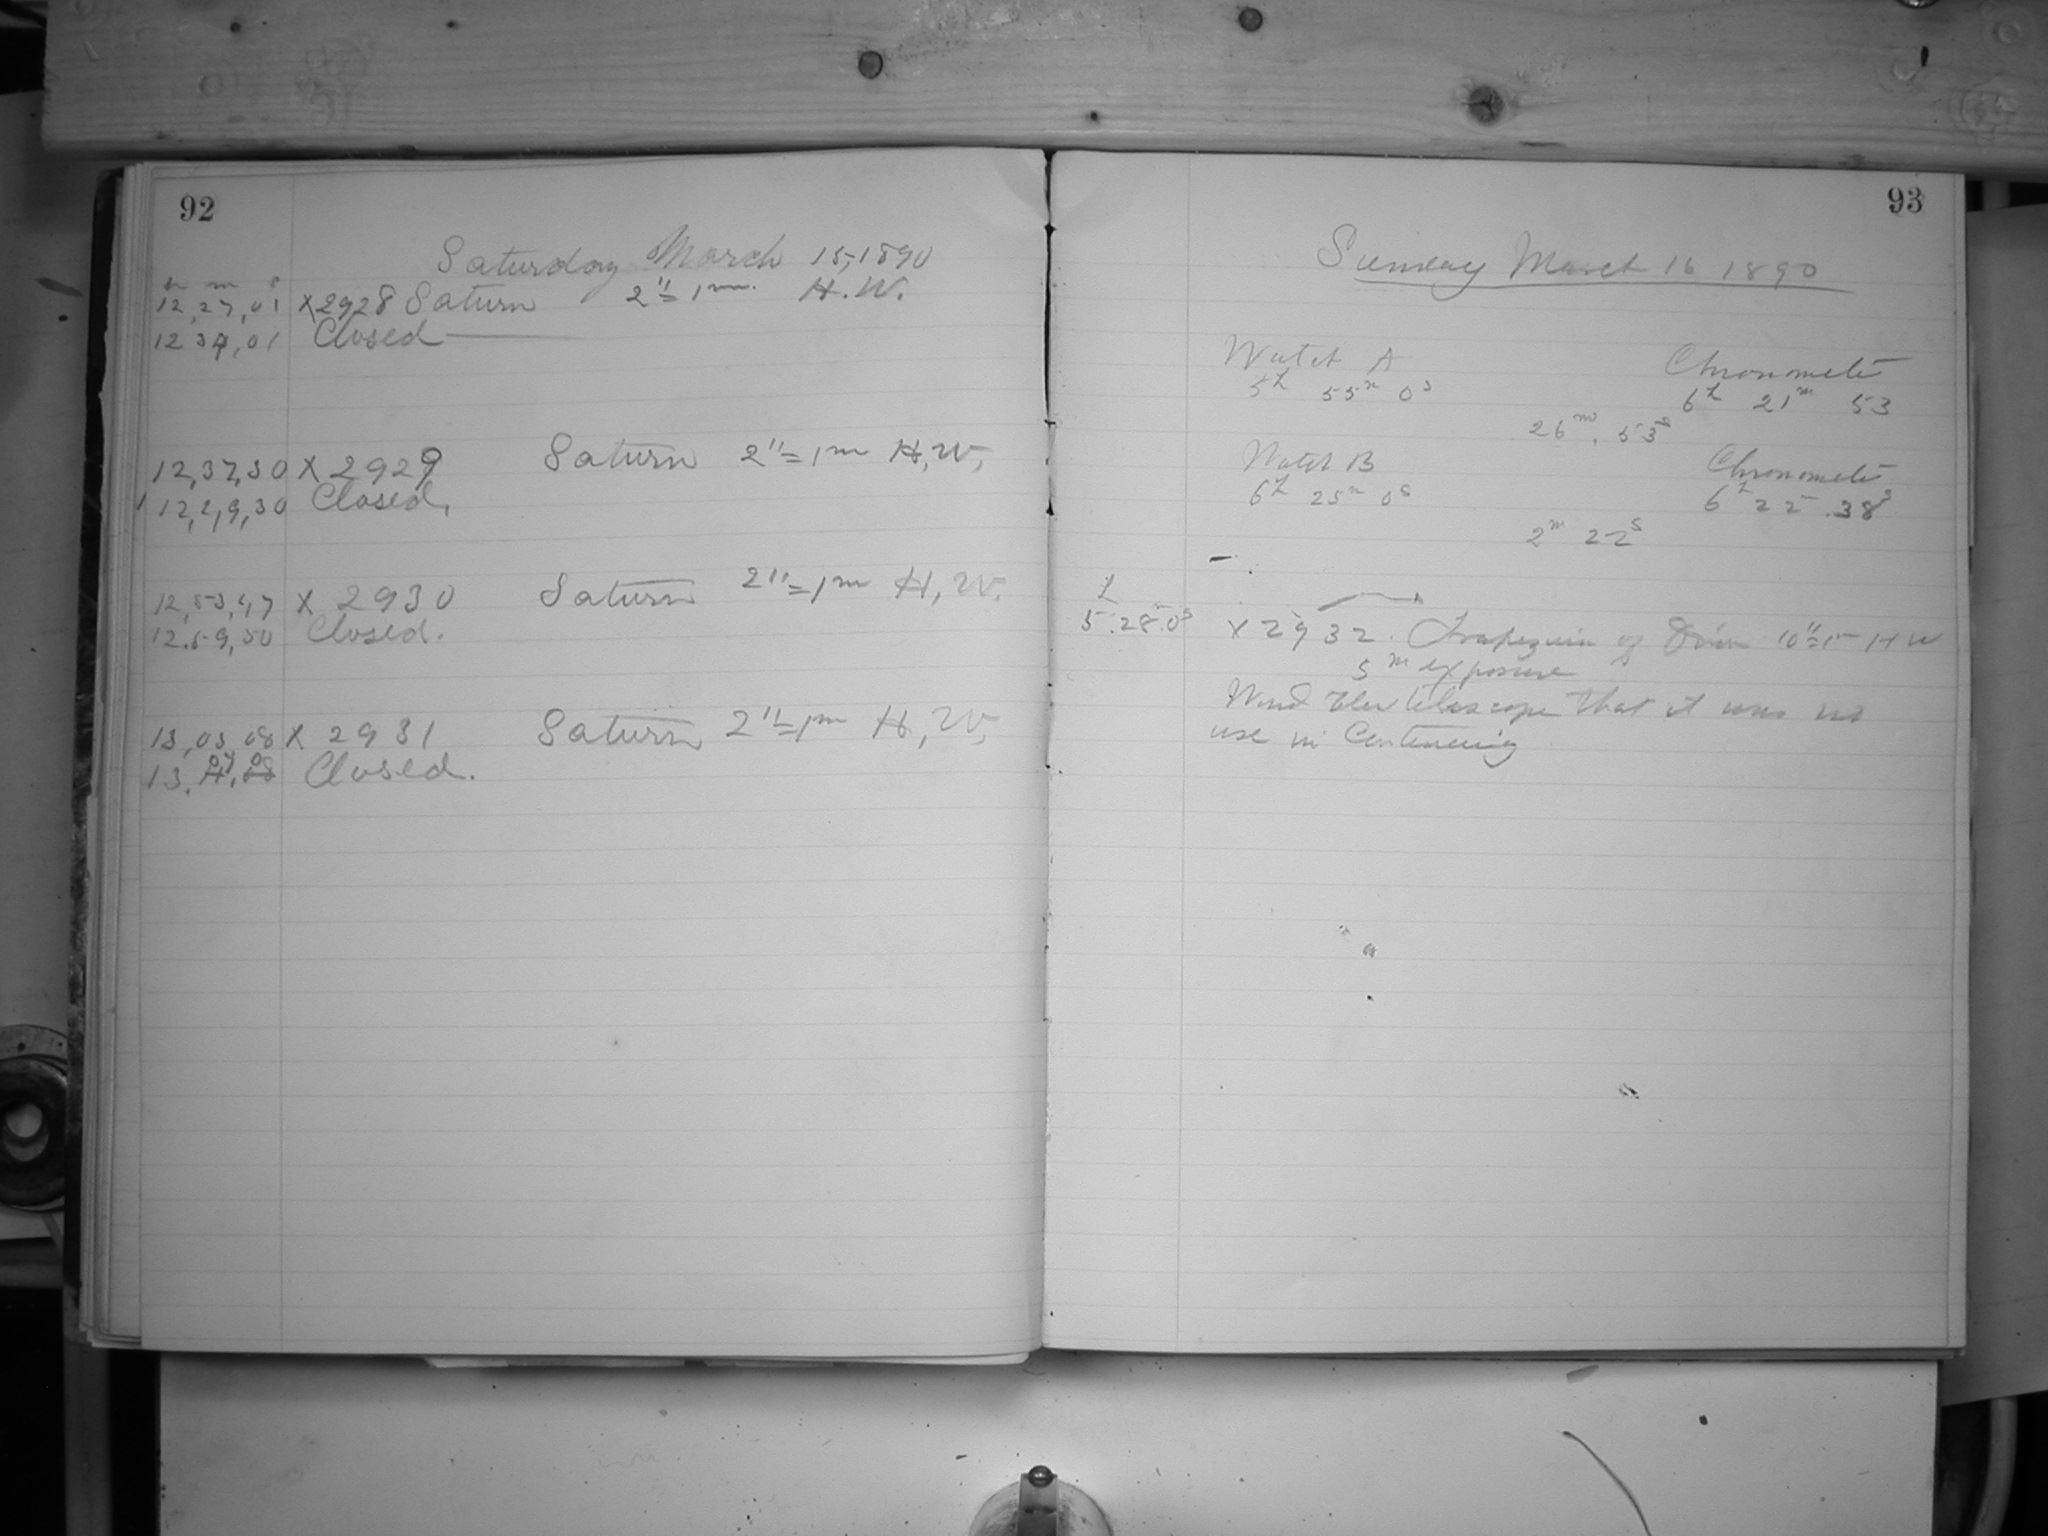 92
Saturday March 15, 1890
h m s
12,27,01 X2928 Saturn 2"=1m. H.W.
12 37,01 Closed
12,37,30 X 2929 Saturn 2"=1m H,W,
Closed,
12,53,47 X 2930 Saturn 2"=1m H,W.
12.59,50 Closed.
13,03,08 X 2931 Saturn 2"=1m H,W,
13, Closed.
93
Sunday March 16 1890
Watch A Chronometer
5h 55m 0s 6h 21m 53
26m. 53s
Watch B Chronometer
6h 25m 0s 6h 22 38s
2m 22s
h
5.28.0s X2932. Trapezium of Orion 10"=1- HW
5m exposure
Wind blew telescope that it was no
use in Centering